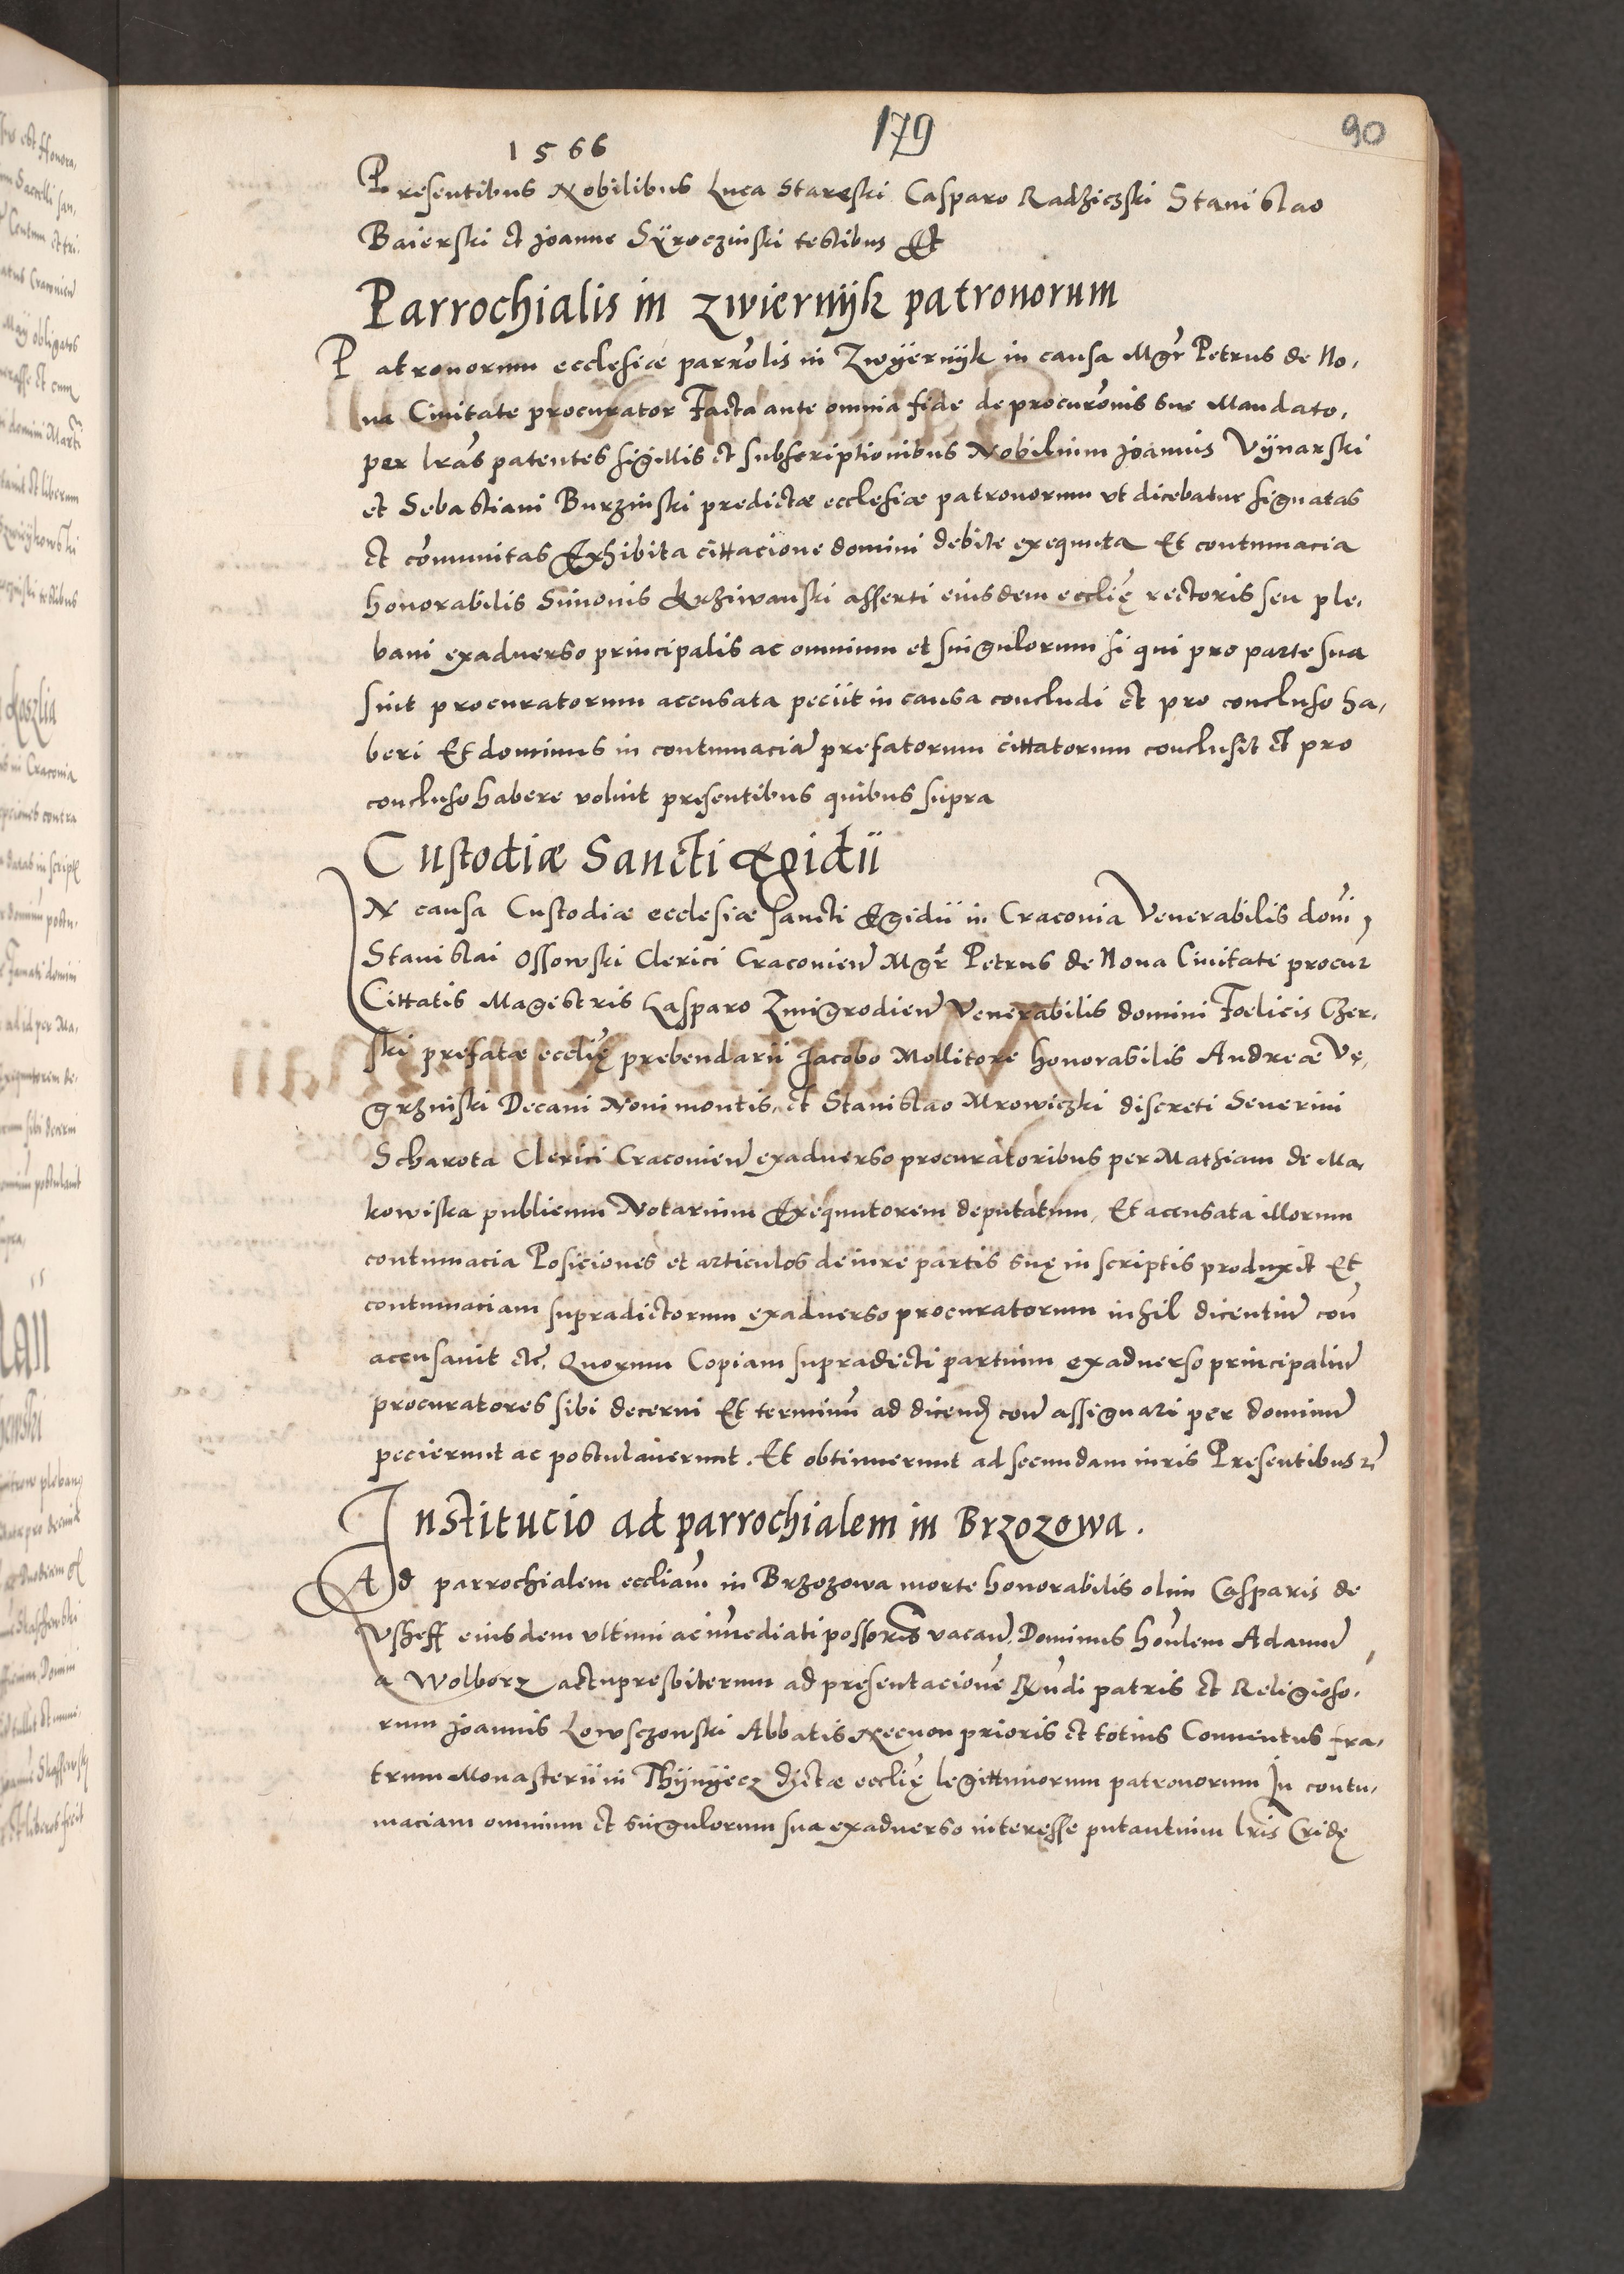 179
90
1566
Presentibus Nobilibus Luca Staręski Casparo Radziczski Stanislao
Baierski et Joanne Sÿroczinski testibus Et
Parrochialis in zwiernÿk patronorum
Patronorum ecclesiæ parrolis in Zwÿernÿk in causa Mgr Petrus de No,
ua Ciuitate procurator Facta ante omnia fide de procuronis sue Mandato,
per lras patentes sigillis et subscriptionibus Nobilium Joannis Vÿnarski
et Sebastiani Burzinski predictæ ecclesiæ patronorum vt dicebatur signatas
et comunitas Exhibita cittacione domini debite exequuta Et contumacia
honorabilis Simonis Krziwanski asserti eiusdem ecclię rectoris seu ple,
bani exaduerso principalis ac omnium et singulorum si qui pro parte sua
sint procuratorum accusata peciit in causa concludi et pro concluso ha,
beri Et dominus in contumacia prefatorum cittatorum conclusit et pro
concluso habere voluit presentibus quibus supra
Custodiæ Sancti Egidii
IN causa Custodiæ ecclesiæ sancti Egidii in Craconia Venerabilis domi,
Stanislai Ossowski Clerici Craconien Mgr Petrus de Noua Ciuitate procur
Cittatis Magistris Casparo Zmigrodien Venerabilis domini Foelicis Czer,
ski prefatæ ecclię prebendarii Jacobo Mollitore honorabilis Andreæ Vę,
grzinski Decani Noui montis, et Stanislao Mrowiczki discreti Seuerini
Scharota Clerici Craconien exaduerso procuratoribus per Mathiam de Ma,
kowiska publicum Notarium Exequutorem deputatum, Et accusata illorum
contumacia Posiciones et articulos de iure partis suę in scriptis produxit Et
contumaciam supradictorum exaduerso procuratorum nihil dicentium con
accusauit etc, Quorum Copiam supradicti partium exaduerso principalium
procuratores sibi decerni Et terminum ad dicend con assignari per dominum
pecierunt ac postulauerunt. Et obtinuerunt ad secundam iuris Presentibus
Institucio ad parrochialem in Brzozowa.
Ad parrochialem eccliam in Brzozowa morte honorabilis olim Casparis de
Vszeff eiusdem vltimi ac immediati possoris vacan, Dominus honlem Adamum
a Wolborz actu presbiterum ad presentacione Rndi patris et Religioso,
rum Joannis Lowsczowski Abbatis Necnon prioris et totius Conuentus fra,
trum Monasterii in Thÿnÿecz dictæ ecclię legittimorum patronorum In contu,
maciam omnium et singulorum sua exaduerso interesse putantium lris Cridę